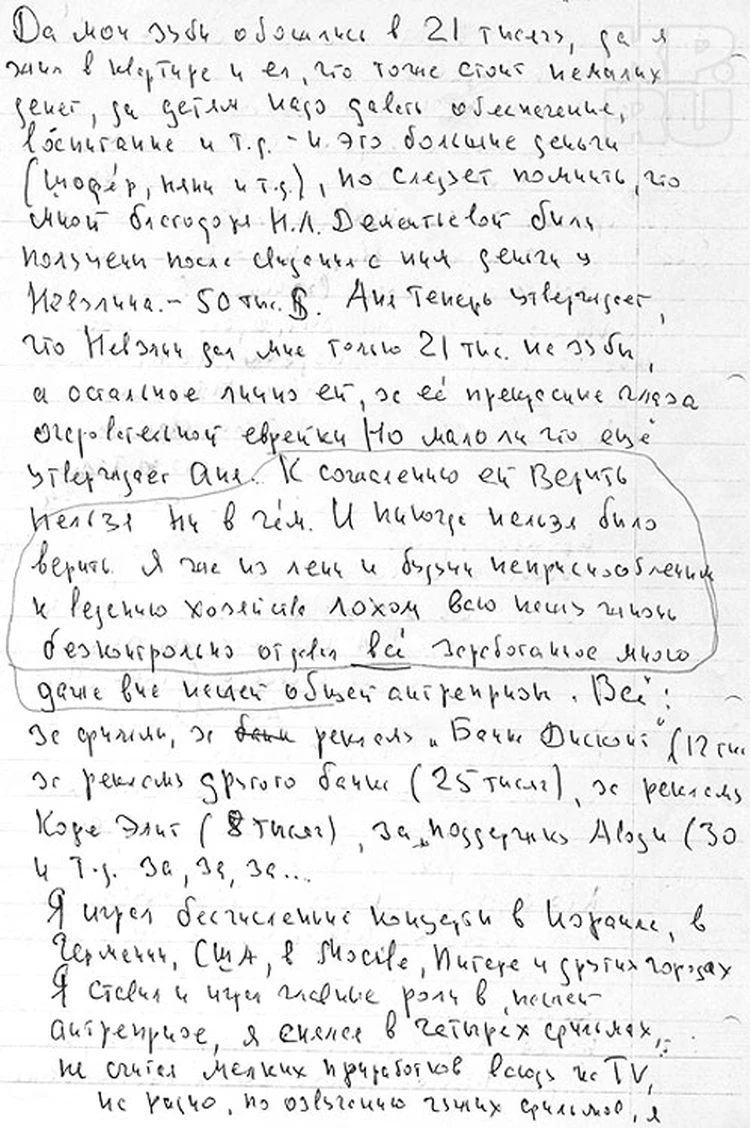 Да мои зубы обошлись в 21 тысячу, да я
жил в квартире и ел, что тоже стоит немалых
денег, да детям надо давать обеспечение,
воспитание и т.д. - и это большие деньги
(шофёр, няни и т.д.), но следует помнить, что
мной благодаря Н.Л. Дементьевой были
получены после свидания с ним деньги у
Невзлина. - 50 тыс. $. Аня теперь утверждает,
что Невзлин дал мне только 21 тыс. на зубы,
а остальное лично ей, за её прекрасные глаза
очаровательной еврейки Но мало ли что ещё
утверждает Аня. К сожалению ей верить
нельзя ни в чём. И никогда нельзя было
верить. Я же из лени и будучи неприспособленным
к ведению хозяйства лохом всю нашу жизнь
безконтрольно отдавал всё заработанное мною
даже вне нашей общей антрепризы. Всё:
за фильмы, за рекламу „Банк Дисконт" (12 тыс
за рекламу другого банка (25 тысяч), за рекламу
Кофе Элит (8 тысяч), за „поддержку Аводы (30
и т.д. За, за, за...
Я играл бесчисленные концерты в Израиле, в
Германии, США, в Москве, Питере и других городах
Я ставил и играл главные роли в „нашей
антрепризе, я снялся в четырёх фильмах,
не считая мелких приработков всюду на TV,
на радио, по озвучению чужих фильмов, я
KP.RU